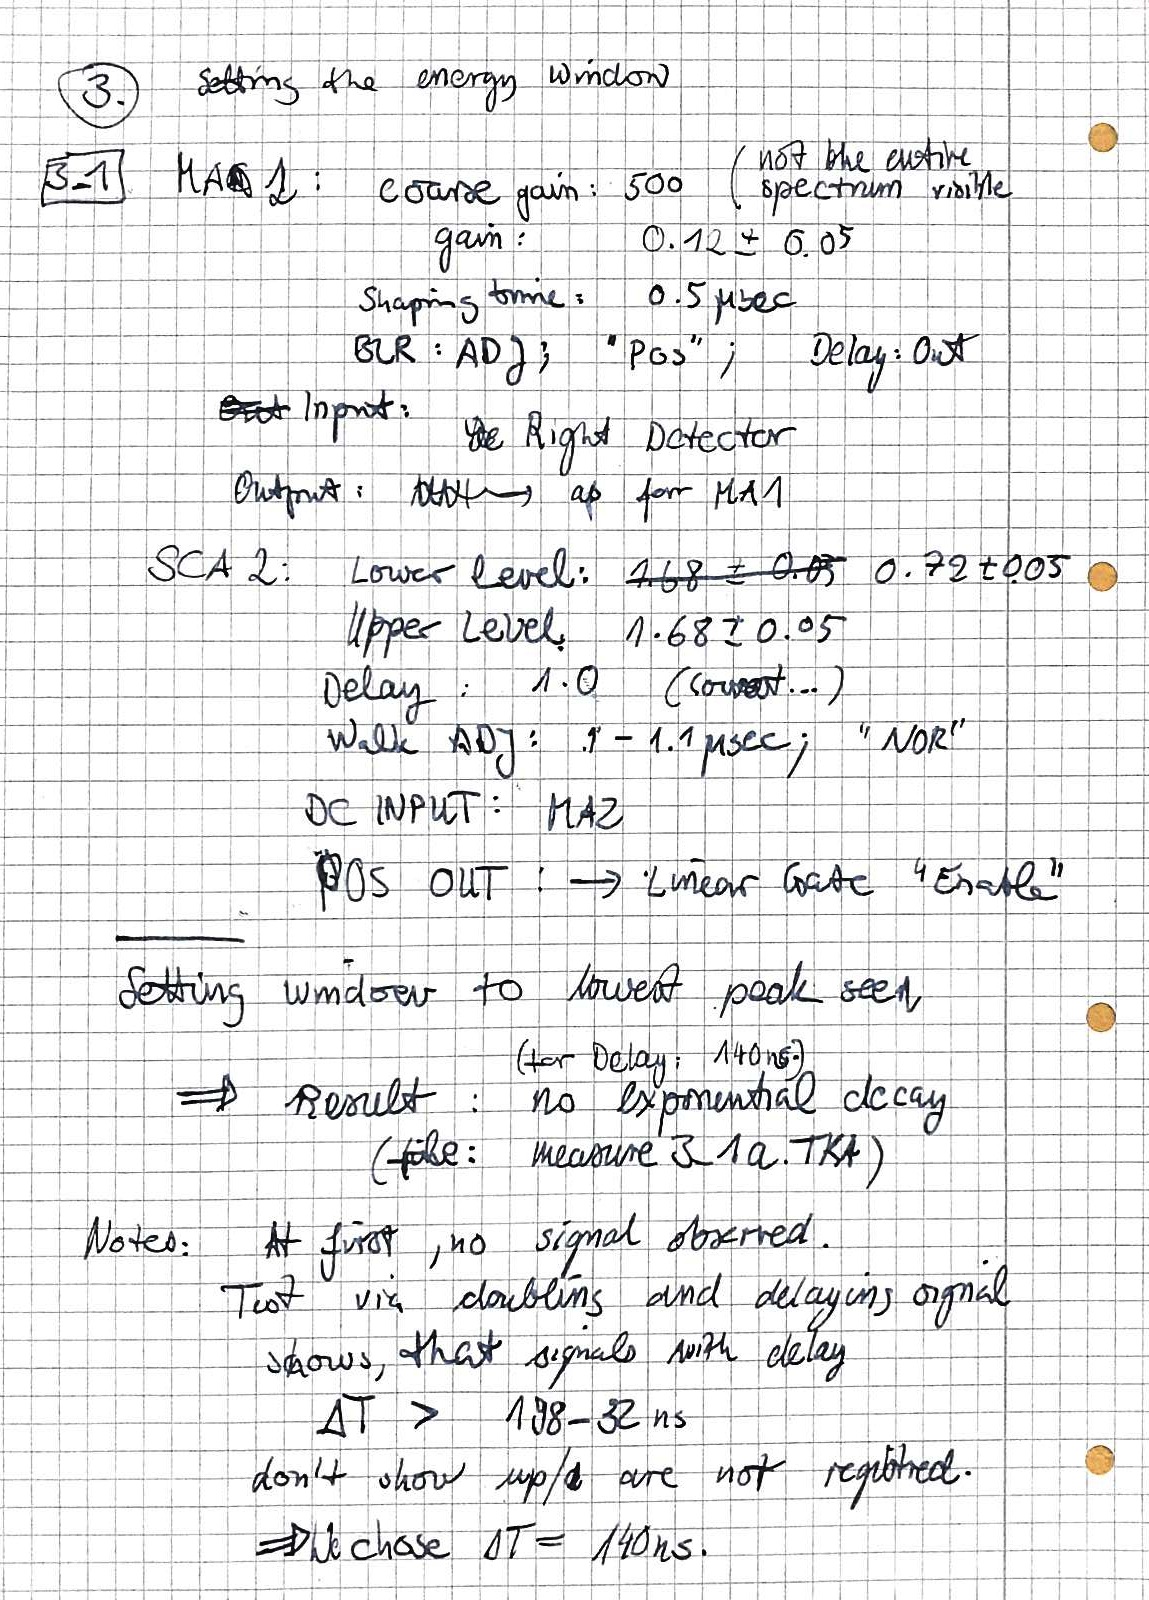 3. Setting the energy window
3-1 MA 2: coarse gain: 500 (not the entire
spectrum visible
gain: 0.12 ± 0.05
Shaping time: 0.5 µsec
BLR: ADJ; "POS"; Delay: Out
Input: Right Detector
Output: → as for MA1
SCA 2: Lower Level: 1.68 ± 0.05 0.72 ± 0.05
Upper Level: 1.68 ± 0.05
Delay: 1.0 (lowest...)
Walk ADJ: .1 - 1.1 µsec; "NOR"
DC INPUT: MA2
POS OUT: → Linear Gate "Enable"
Setting window to lowest peak seen
(for Delay: 140ns)
⇒ Result: no exponential decay
(file: measure 3_1a.TKA)
Notes: At first, no signal observed.
Test via doubling and delaying signal
shows, that signals with delay
ΔT > 198-32 ns
don't show up/ are not registred.
⇒ We chose ΔT = 140ns.